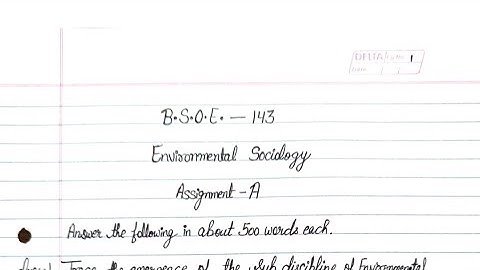 DELTA Pg No. 1
Date / /
B.S.O.E. — 143
Environmental Sociology
Assignment - A
Answer the following in about 500 words each.
Trace the emergence of the sub discipline of Environmental